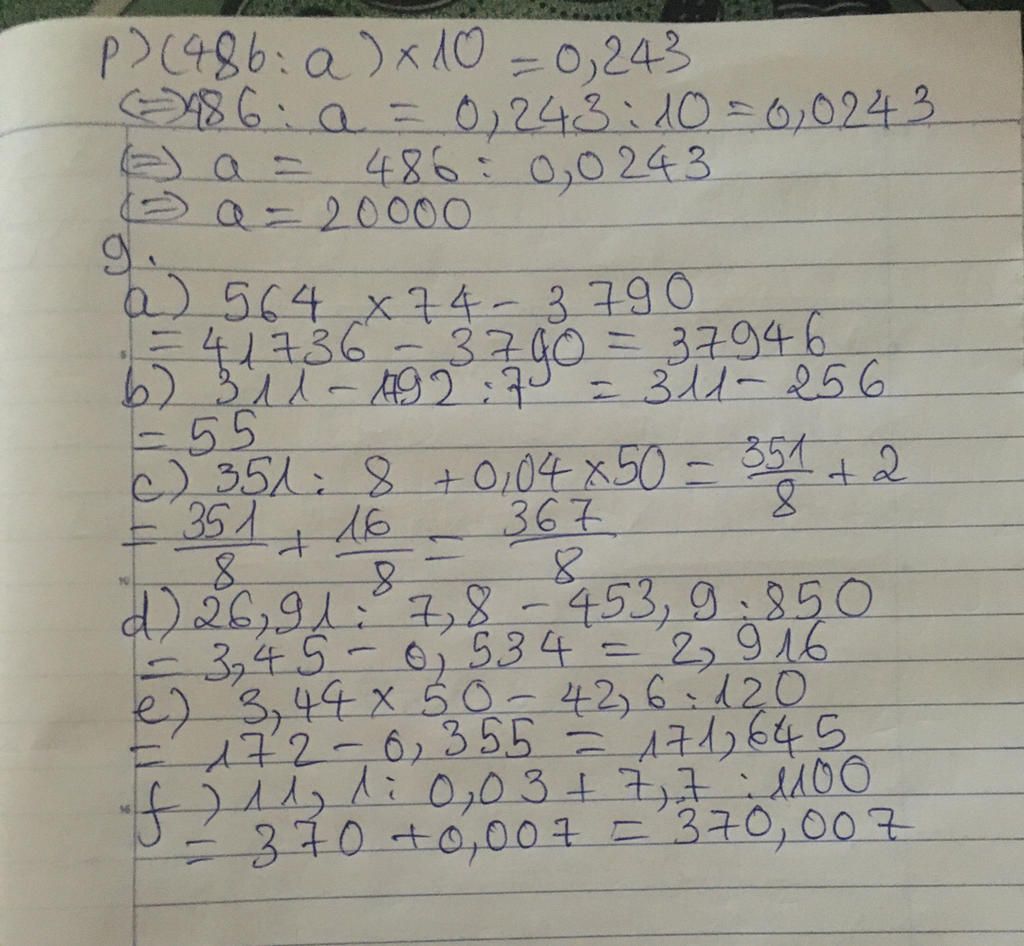 p) (486 : a) × 10 = 0,243
⇔ 486 : a = 0,243 : 10 = 0,0243
⇔ a = 486 : 0,0243
⇔ a = 20000
9.
a) 564 × 74 - 3790
= 41736 - 3790 = 37946
b) 311 - 1792 : 7 = 311 - 256
= 55
c) 351 : 8 + 0,04 × 50 = 351/8 + 2
= 351/8 + 16/8 = 367/8
d) 26,91 : 7,8 - 453,9 : 850
= 3,45 - 0,534 = 2,916
e) 3,44 × 50 - 42,6 : 120
= 172 - 0,355 = 171,645
f) 11,1 : 0,03 + 7,7 : 1100
= 370 + 0,007 = 370,007